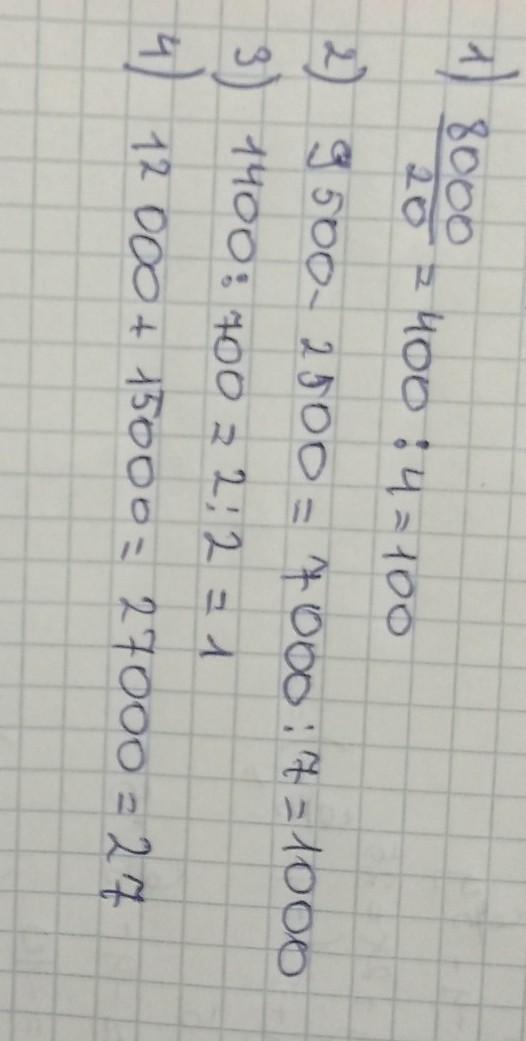 1) 8000/20 = 400 : 4 = 100
2) 9500 - 2500 = 7000 : 7 = 1000
3) 1400 : 700 = 2 : 2 = 1
4) 12 000 + 15000 = 27000 = 27